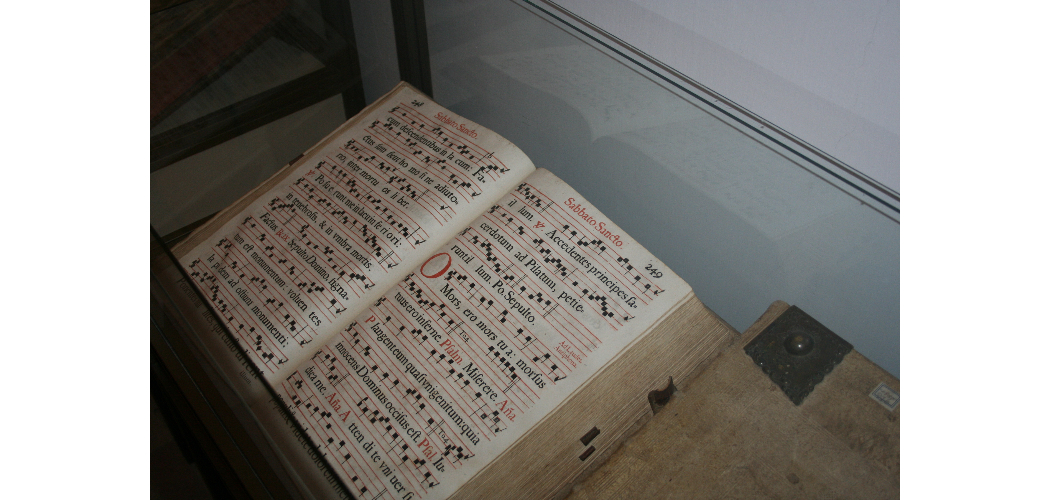 248
Sabbato Sancto.
cum descendentibus in la cum: Fa-
ctus sum sicut ho mo si ne adiuto-
rio, inter mortu os li ber.
℣ Posuerunt me in lacu inferiori:
in tenebrosis, & in vmbra mortis.
Factus. Sepulto Domino, signa-
tum est monumentum: voluen tes
la pidem ad ostium monumenti:
Sabbato Sancto.
249
il lum. ℣ Accedentes principes sa-
cerdotum ad Pilatum, petie-
runt il lum. Po. Sepulto.
Ad Laudes
O Mors, ero mors tu a: morsus
tuus ero inferne. Psalm. Miserere. Aña.
Plangent eum quasi vnigenitum: quia
innocens Dominus occisus est. Psal. Iu-
dica me. Aña. A tten di te vni uer si